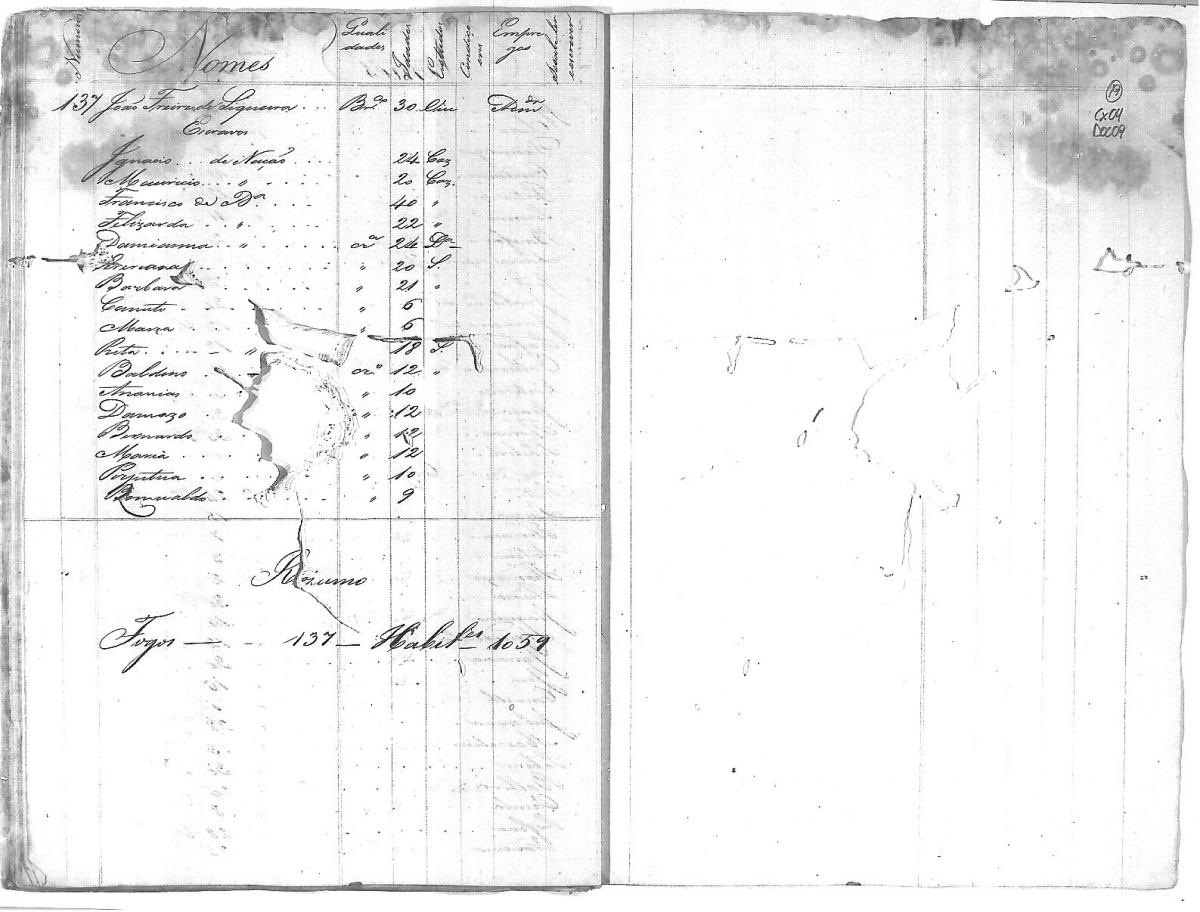 Numeros Nomes Quali dades Idades Estados Condiço ens Empre gos
137 João Freire de Siqueira Br.co 30 Adm.or
Escravos
Ignacio de Nação 24 Caz.
Mauricio " 20 Caz.
Francisco de D.a 40 "
Felizarda " 22 "
Damianna " cr.a 24 D.a
" 20 S.
Barbara " 21 "
Canuto " 6
Maria " 6
Rita " 18 S.
Baldino cr.o 12 "
Ananias " 10
Damazo " 12
Bernardo " 12
Maria " 12
Perpetua " 10
Romualdo " 9
Rezumo
Fogos — 137 — Habit.es — 1059
19
Cx04
Doc09